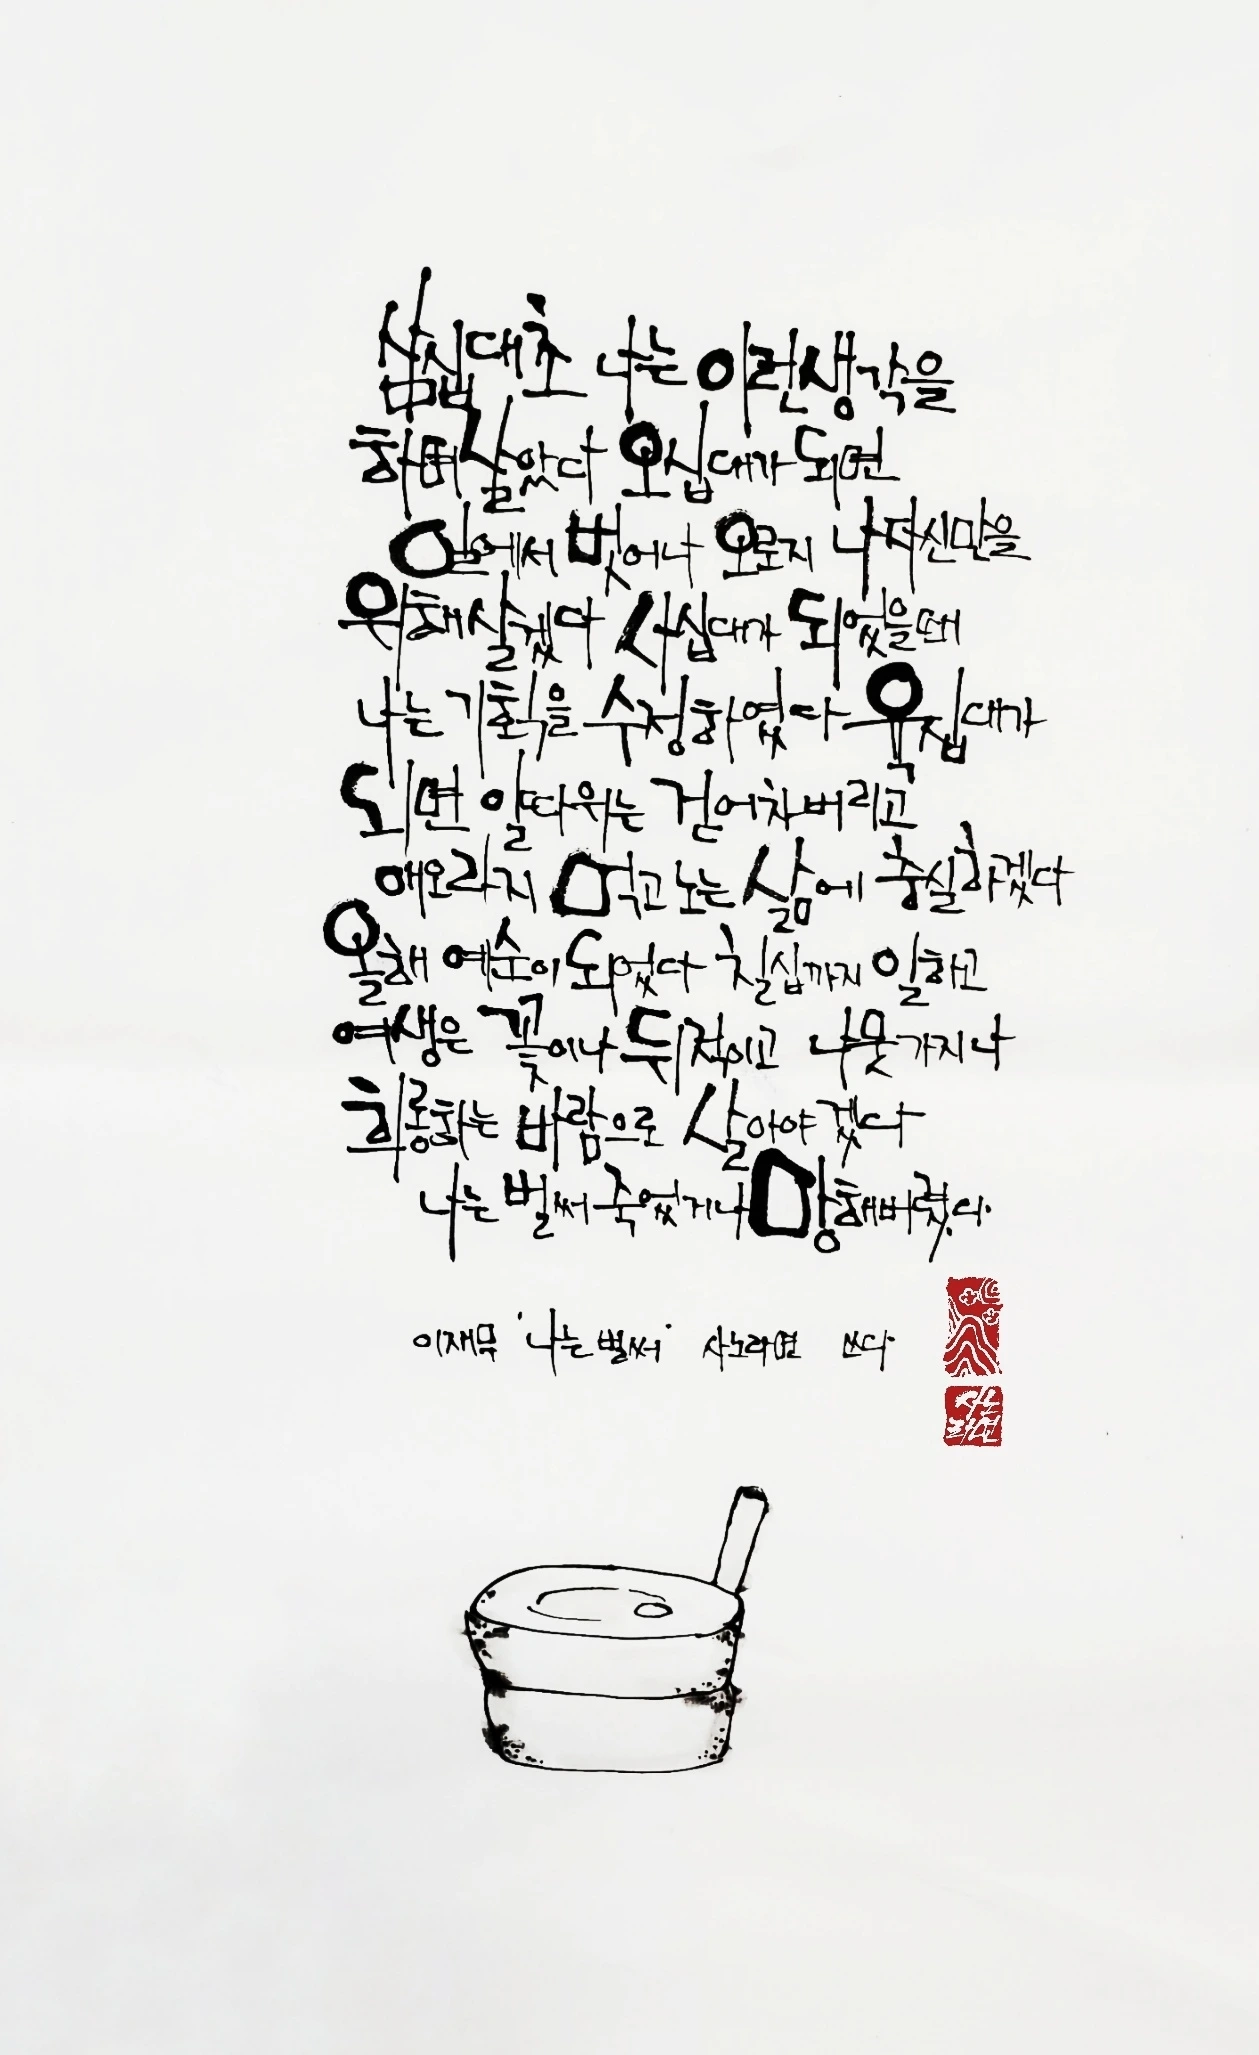 삼십대 초 나는 이런 생각을
하며 살았다 오십대가 되면
일에서 벗어나 오로지 나 자신만을
위해 살겠다 사십대가 되었을 때
나는 기획을 수정하였다 육십대가
되면 일 따위는 걷어차버리고
애오라지 먹고 노는 삶에 충실하겠다
올해 예순이 되었다 칠십까지 일하고
여생은 꽃이나 뒤적이고 나뭇가지나
희롱하는 바람으로 살아야겠다
나는 벌써 죽었거나 망해버렸다.
이재무 '나는 벌써' 사노라면 쓰다
사노
라면